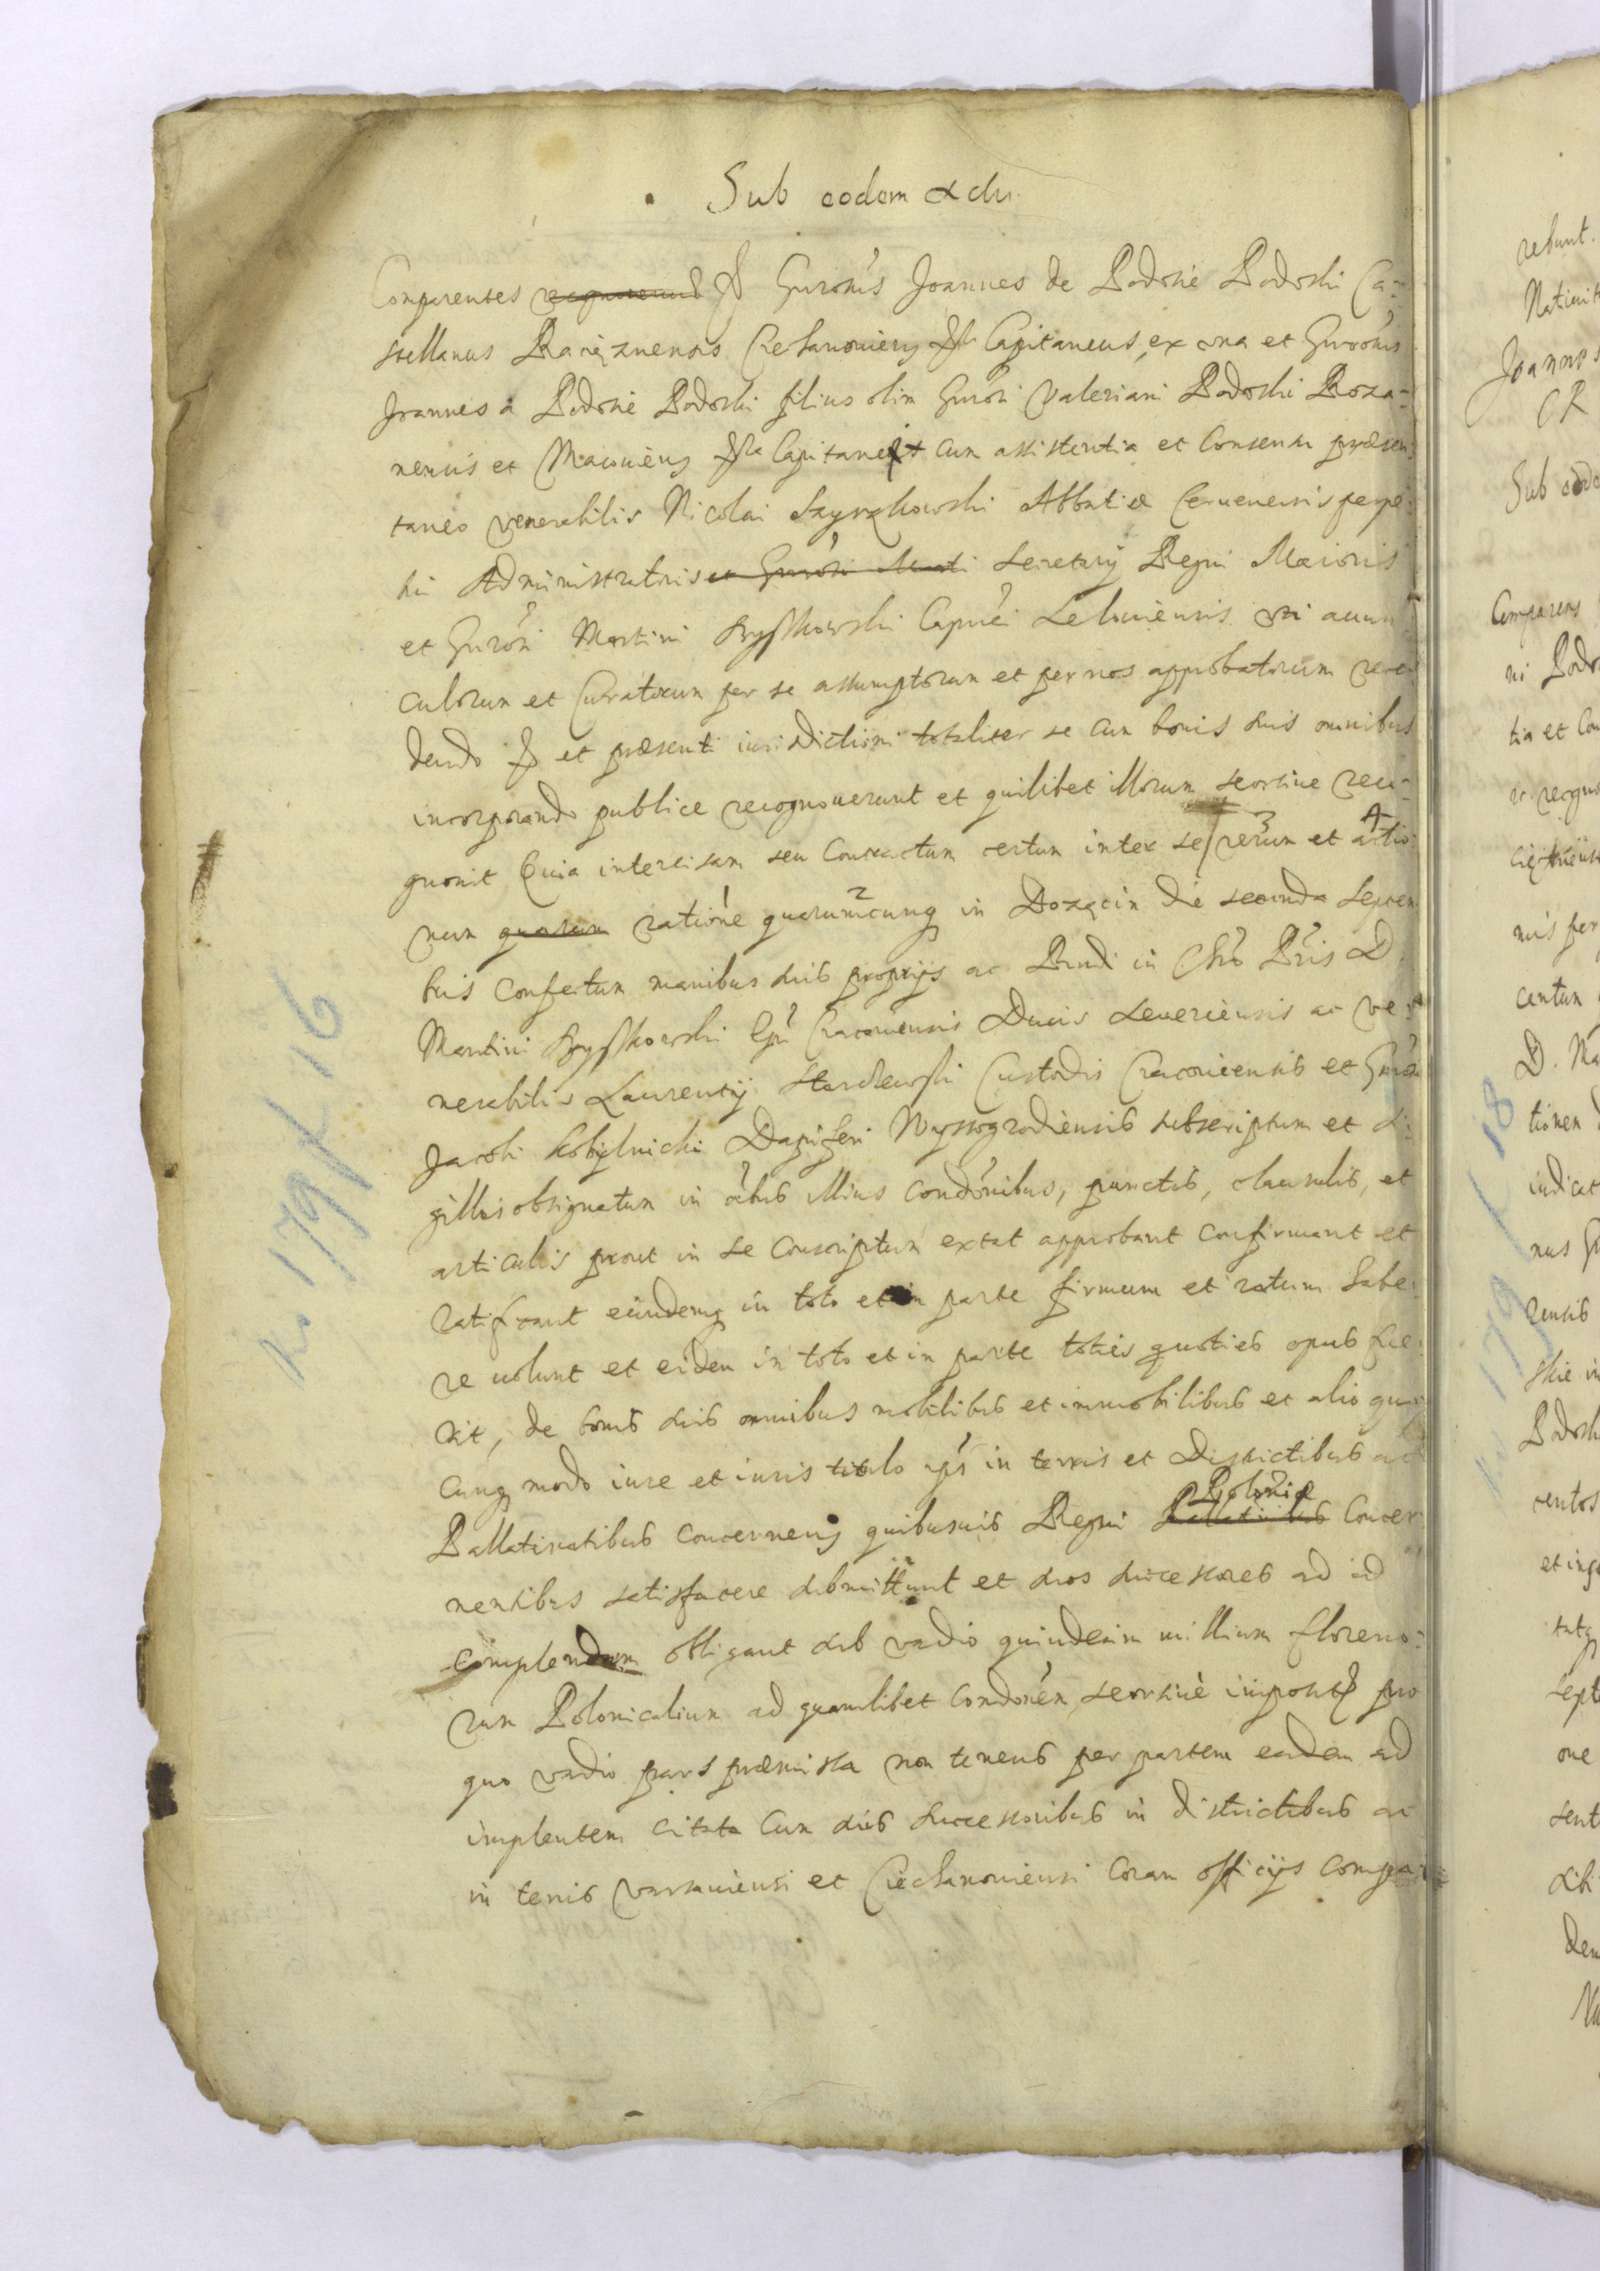 Sub eodem actu
Comparentes recognoverunt Gnrosus Joannes de Podoski Podoski Ca-
stellanus Raciąznensis Ciechanovien Capitaneus, ex una et Gnrosus
Joannes a Podoski Podoski filius olim Gnrosi Valeriani Podoski Roza-
nensis et Macovien Capitanei cum assistentia et Consensu præsen
taneo venerabilis Nicolai Szyszkowski Abbatiæ Cervenensis perpe
tui Administratoris et Gnrosi Marti Secretarij Regni Maioris
et Gnrosi Martini Szyszkowski Capnei Leloviensis uti avun
culorum et Curatorum per se assumptorum et per nos approbatorum rece
dendo et præsenti iurisdictioni totaliter se cum bonis suis omnibus
incorporando publice recognoverunt et quilibet illorum seorsive reco-
gnovit Quia intercisam seu Contractum certum inter se rerum et actio
num quarum ratione quarumcunq in die secunda Septem
bris confectum manibus suis proprijs ac Rndi in Chro Pris D
Martini Szyszkowski Epi Cracoviensis Ducis Severiensis ac ve
nerabilis Laurentij Custodis Cracoviensis et Gnrosi
Jacobi Kobylnicki Dapiferi Wyssogrodiensis subscriptum et si
gillis obsignatum in oibus illius condonibus, punctis, clausulis, et
articulis prout in se Conscriptum extat approbant confirmant et
ratificant eundemq in toto et in parte firmum et ratum habe
re volunt et eidem in toto et in parte toties quoties opus fue
rit, de bonis suis omnibus mobilibus et immobilibus et alio quo
cunq modo iure et iuris titulo ips in terris et Districtibus ac
Pallatinatibus concernen quibusuis Regni Pallatinatibus Poloniæ Concer
nentibus satisfacere submittunt et suos successores ad id
complendum obligant sub vadio quindecim millium floreno
rum Polonicalium ad quamlibet Condonem seorsive imposit pro
quo vadio pars præmissa non tenens per partem eadem ad
implentem citata cum suis successoribus in districtibus ac
in terris varsaviensi et Ciechanoviensi coram officijs compa
N. 179 f. 16
rebunt.
Nativit
Joannes
CR
Sub eode
Comparens
ni Podo
tia et Con
et recogno
nis per
centum
D. Ma
tionem
indicat
nus
rensis
skie in
Podosk
centos
et infr
septe
one
sent
sibi
dem
N. 179 f. 18